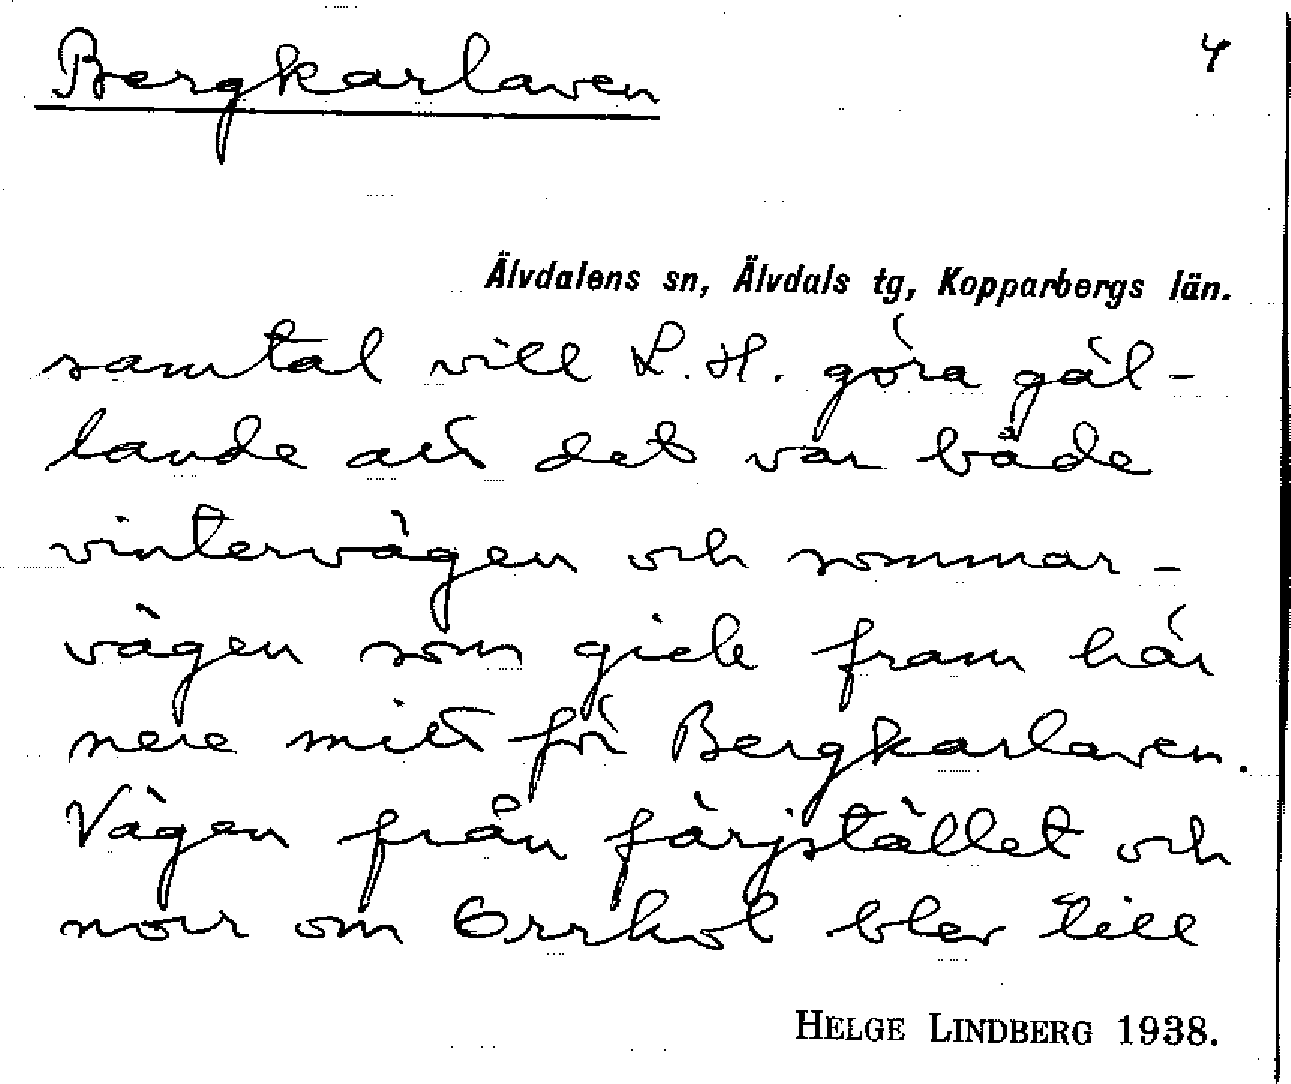 Bergkarlaven
4
Älvdalens sn, Älvdals tg, Kopparbergs län.
samtal vill L. H. göra gäl-
lande att det var både
vintervägen och sommar-
vägen som gick fram här
nere mitt för Bergkarlaven.
Vägen från färjstället och
norr om Orrhol blev till
HELGE LINDBERG 1938.